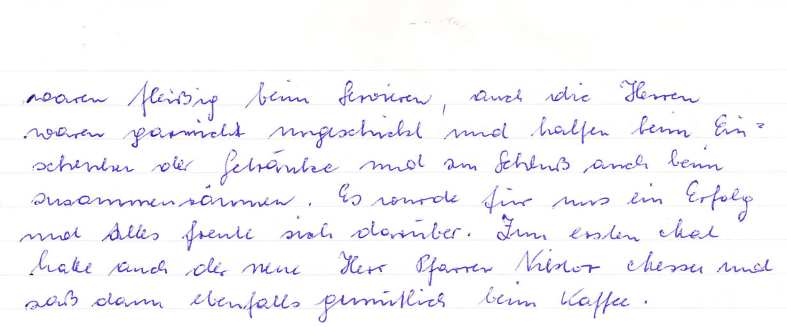 waren fleißig beim Servieren, auch die Herren
waren garnicht ungeschickt und halfen beim Ein=
schenken der Getränke und am Schluß auch beim
zusammenräumen. Es wurde für uns ein Erfolg
und Alles freute sich darüber. Zum ersten Mal
hatte auch der neue Herr Pfarrer Messe und
saß dann ebenfalls gemütlich beim Kaffee.